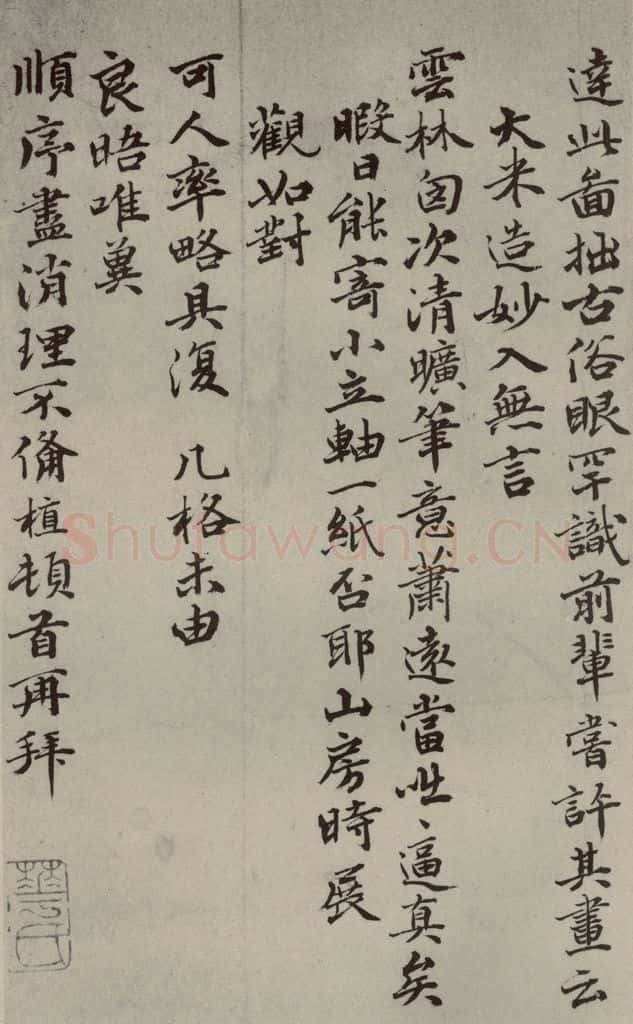 達此畫拙古俗眼罕識前輩嘗許其畫云
大米造妙入無言
雲林胸次清曠筆意蕭遠當咄〻逼真矣
暇日能寄小立軸一紙否耶山房時展
觀如對
可人率略具復 几格未由
良晤唯冀
順序盡消理不備植頓首再拜
Shufawang.CN